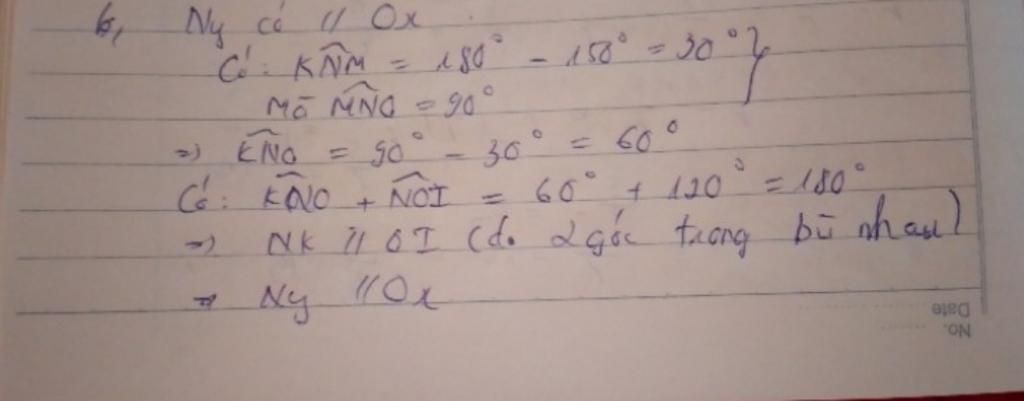 b, Ny có // Ox
Có: KN̂M = 180° - 150° = 30° }
Mà MN̂O = 90°
=> KN̂O = 90° - 30° = 60°
Có: KN̂O + NÔI = 60° + 120° = 180°
=> NK // OI (do 2 góc trong bù nhau)
=> Ny // Ox
Date
No.